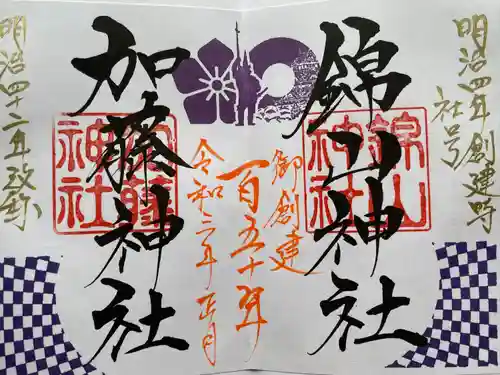 明治四年創建時
社号
錦山神社
錦山神社
御創建
百五十年
令和三年 正月
加藤神社
加藤神社
明治四十二年改称